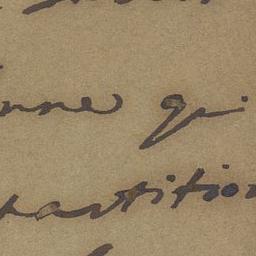 nne qui
partition